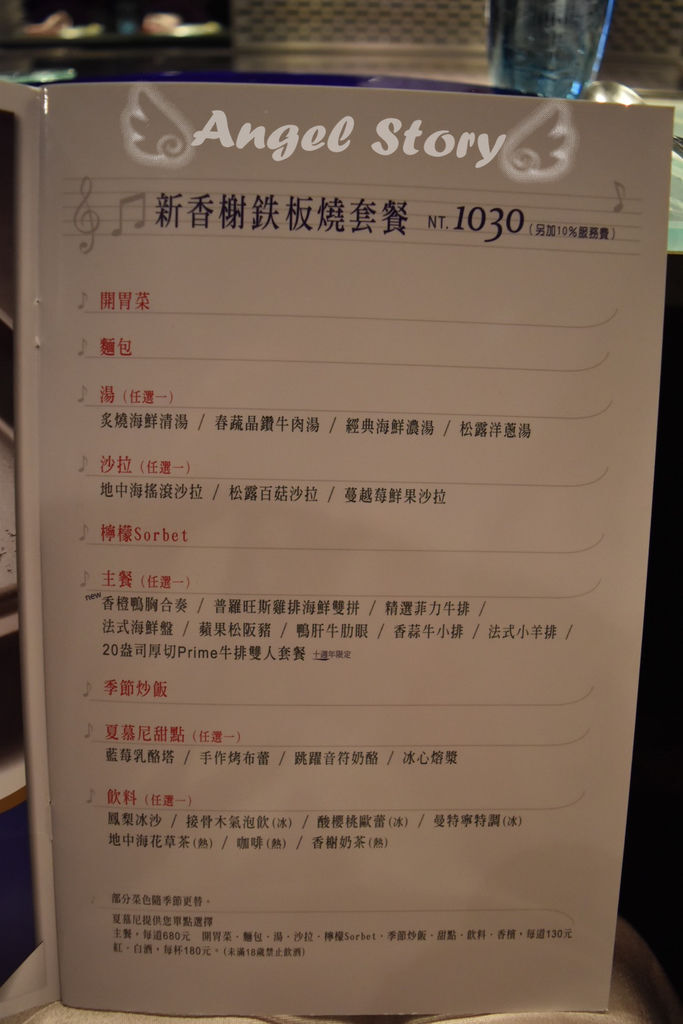 Angel Story
新香榭鉄板燒套餐 NT. 1030 (另加10%服務費)
開胃菜
麵包
湯 (任選一)
炙燒海鮮清湯 / 春蔬晶鑽牛肉湯 / 經典海鮮濃湯 / 松露洋蔥湯
沙拉 (任選一)
地中海搖滾沙拉 / 松露百菇沙拉 / 蔓越莓鮮果沙拉
檸檬Sorbet
主餐 (任選一)
new 香橙鴨胸合奏 / 普羅旺斯雞排海鮮雙拼 / 精選菲力牛排 /
法式海鮮盤 / 蘋果松阪豬 / 鴨肝牛肋眼 / 香蒜牛小排 / 法式小羊排 /
20盎司厚切Prime牛排雙人套餐 十週年限定
季節炒飯
夏慕尼甜點 (任選一)
藍莓乳酪塔 / 手作烤布蕾 / 跳躍音符奶酪 / 冰心熔漿
飲料 (任選一)
鳳梨冰沙 / 接骨木氣泡飲(冰) / 酸櫻桃歐蕾(冰) / 曼特寧特調(冰)
地中海花草茶(熱) / 咖啡(熱) / 香榭奶茶(熱)
部分菜色隨季節更替。
夏慕尼提供您單點選擇
主餐，每道680元 開胃菜．麵包．湯．沙拉．檸檬Sorbet．季節炒飯．甜點．飲料．香檳，每道130元
紅．白酒，每杯180元。(未滿18歲禁止飲酒)